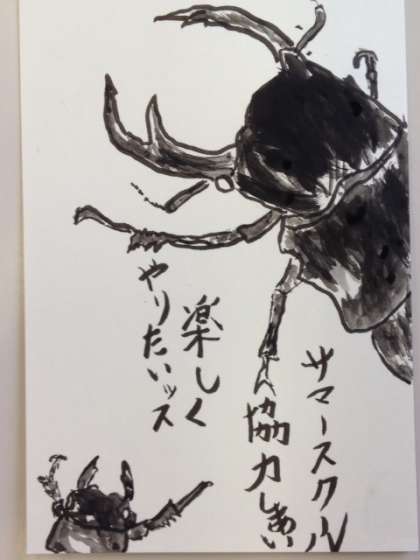 サマースクール
協力しあい
楽しく
やりたいッス